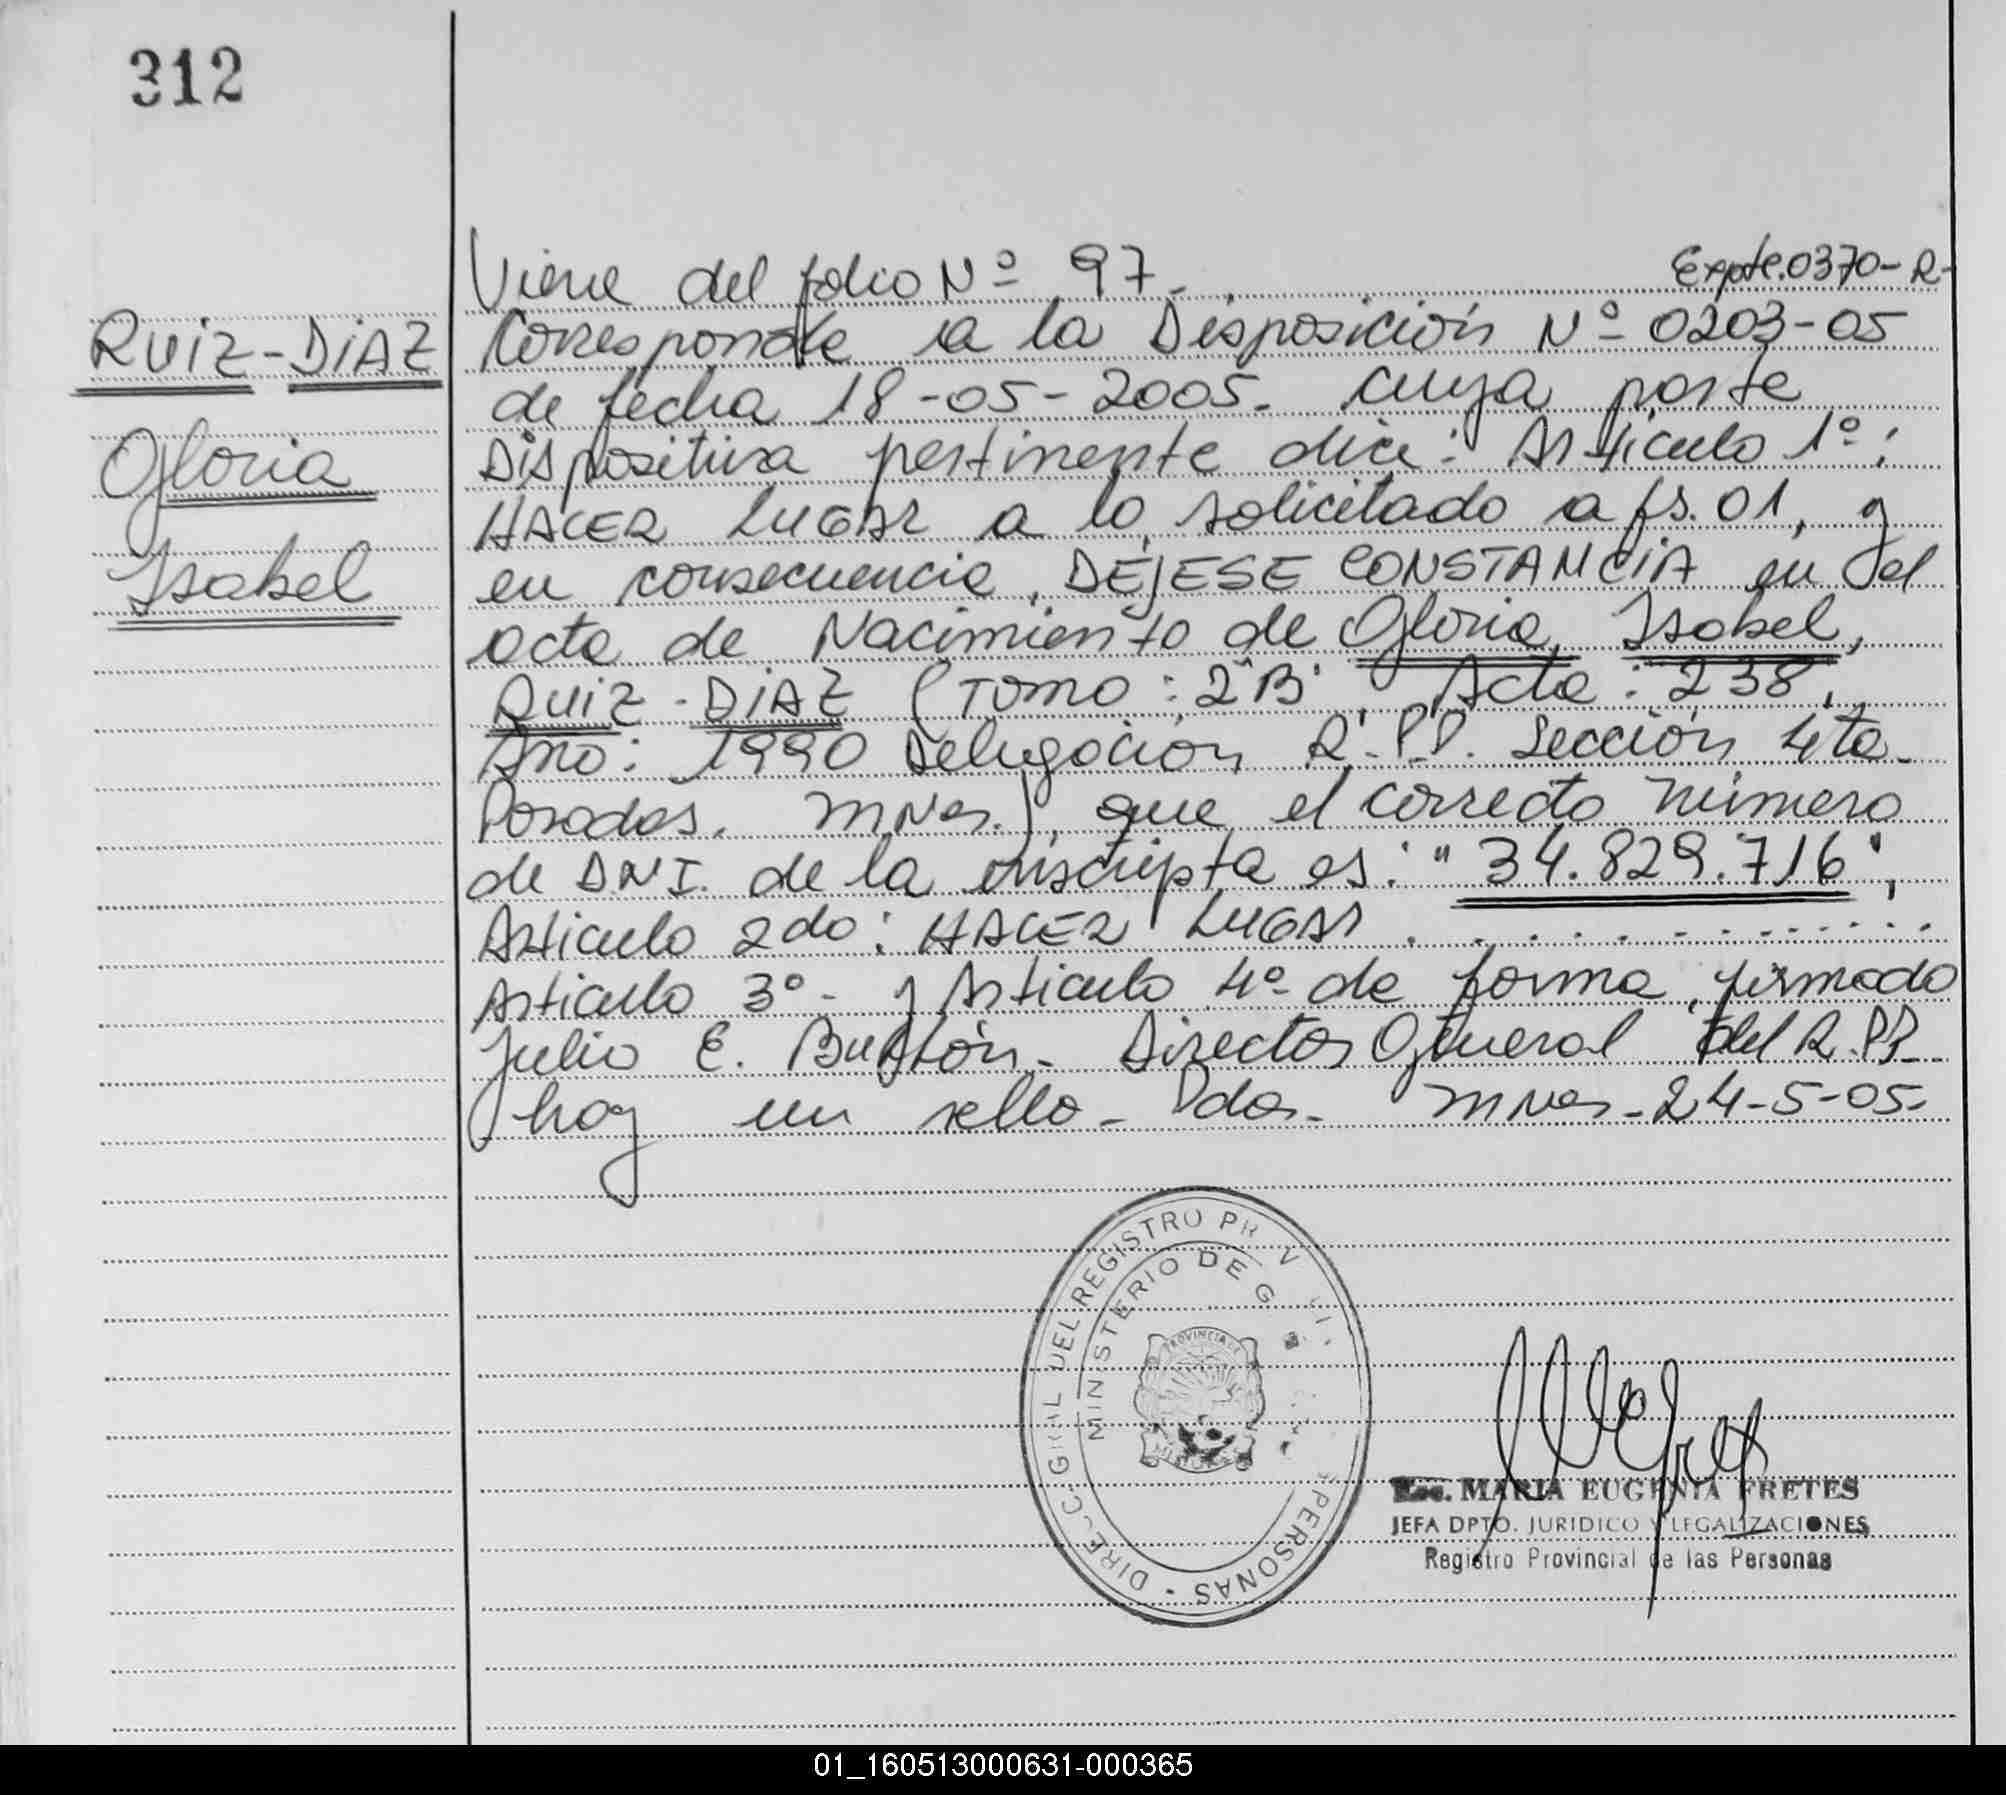 312
Viene del folio Nº 97.
Expte.0370-R-
RUIZ-DIAZ
Gloria
Isabel
Corresponde a la Disposición Nº 0203-05
de fecha 18-05-2005. cuya parte
Dispositiva pertinente dice: Artículo 1º:
HACER LUGAR a lo solicitado a fs. 01, y
en consecuencia, DÉJESE CONSTANCIA en el
acta de Nacimiento de Gloria Isabel,
RUIZ-DIAZ (Tomo: 2"B" Acta: 238,
Año: 1990 Delegación R.P.P. Sección 4ta
Posadas. Mnes.), que el correcto número
de DNI. de la inscripta es: "34.829.716",
Articulo 2do: HACER LUGAR . . . . . . . . . .
Articulo 3º- y Articulo 4º de forma, firmado
Julio E. Director General del R.P.P.
hay un sello - Pdas. Mnes-24-5-05.
DIREC. GRAL DEL REGISTRO PROV PERSONAS
MINISTERIO DE G
PROVINCIA DE
MISIONES
MARIA EUGENIA FRETES
JEFA DPTO. JURIDICO Y LEGALIZACIONES
Registro Provincial de las Personas
01_160513000631-000365